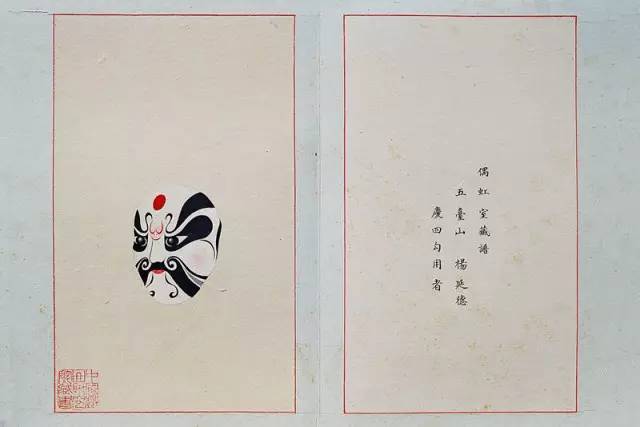 偶虹室藏譜
五臺山 楊延德
慶四勾用者